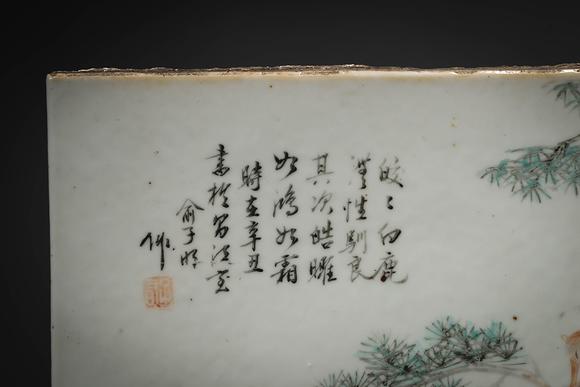 皎〻白鹿
性馴良
其次皓曜
如鴻如霜
時在辛丑
於昌江
俞子明
作